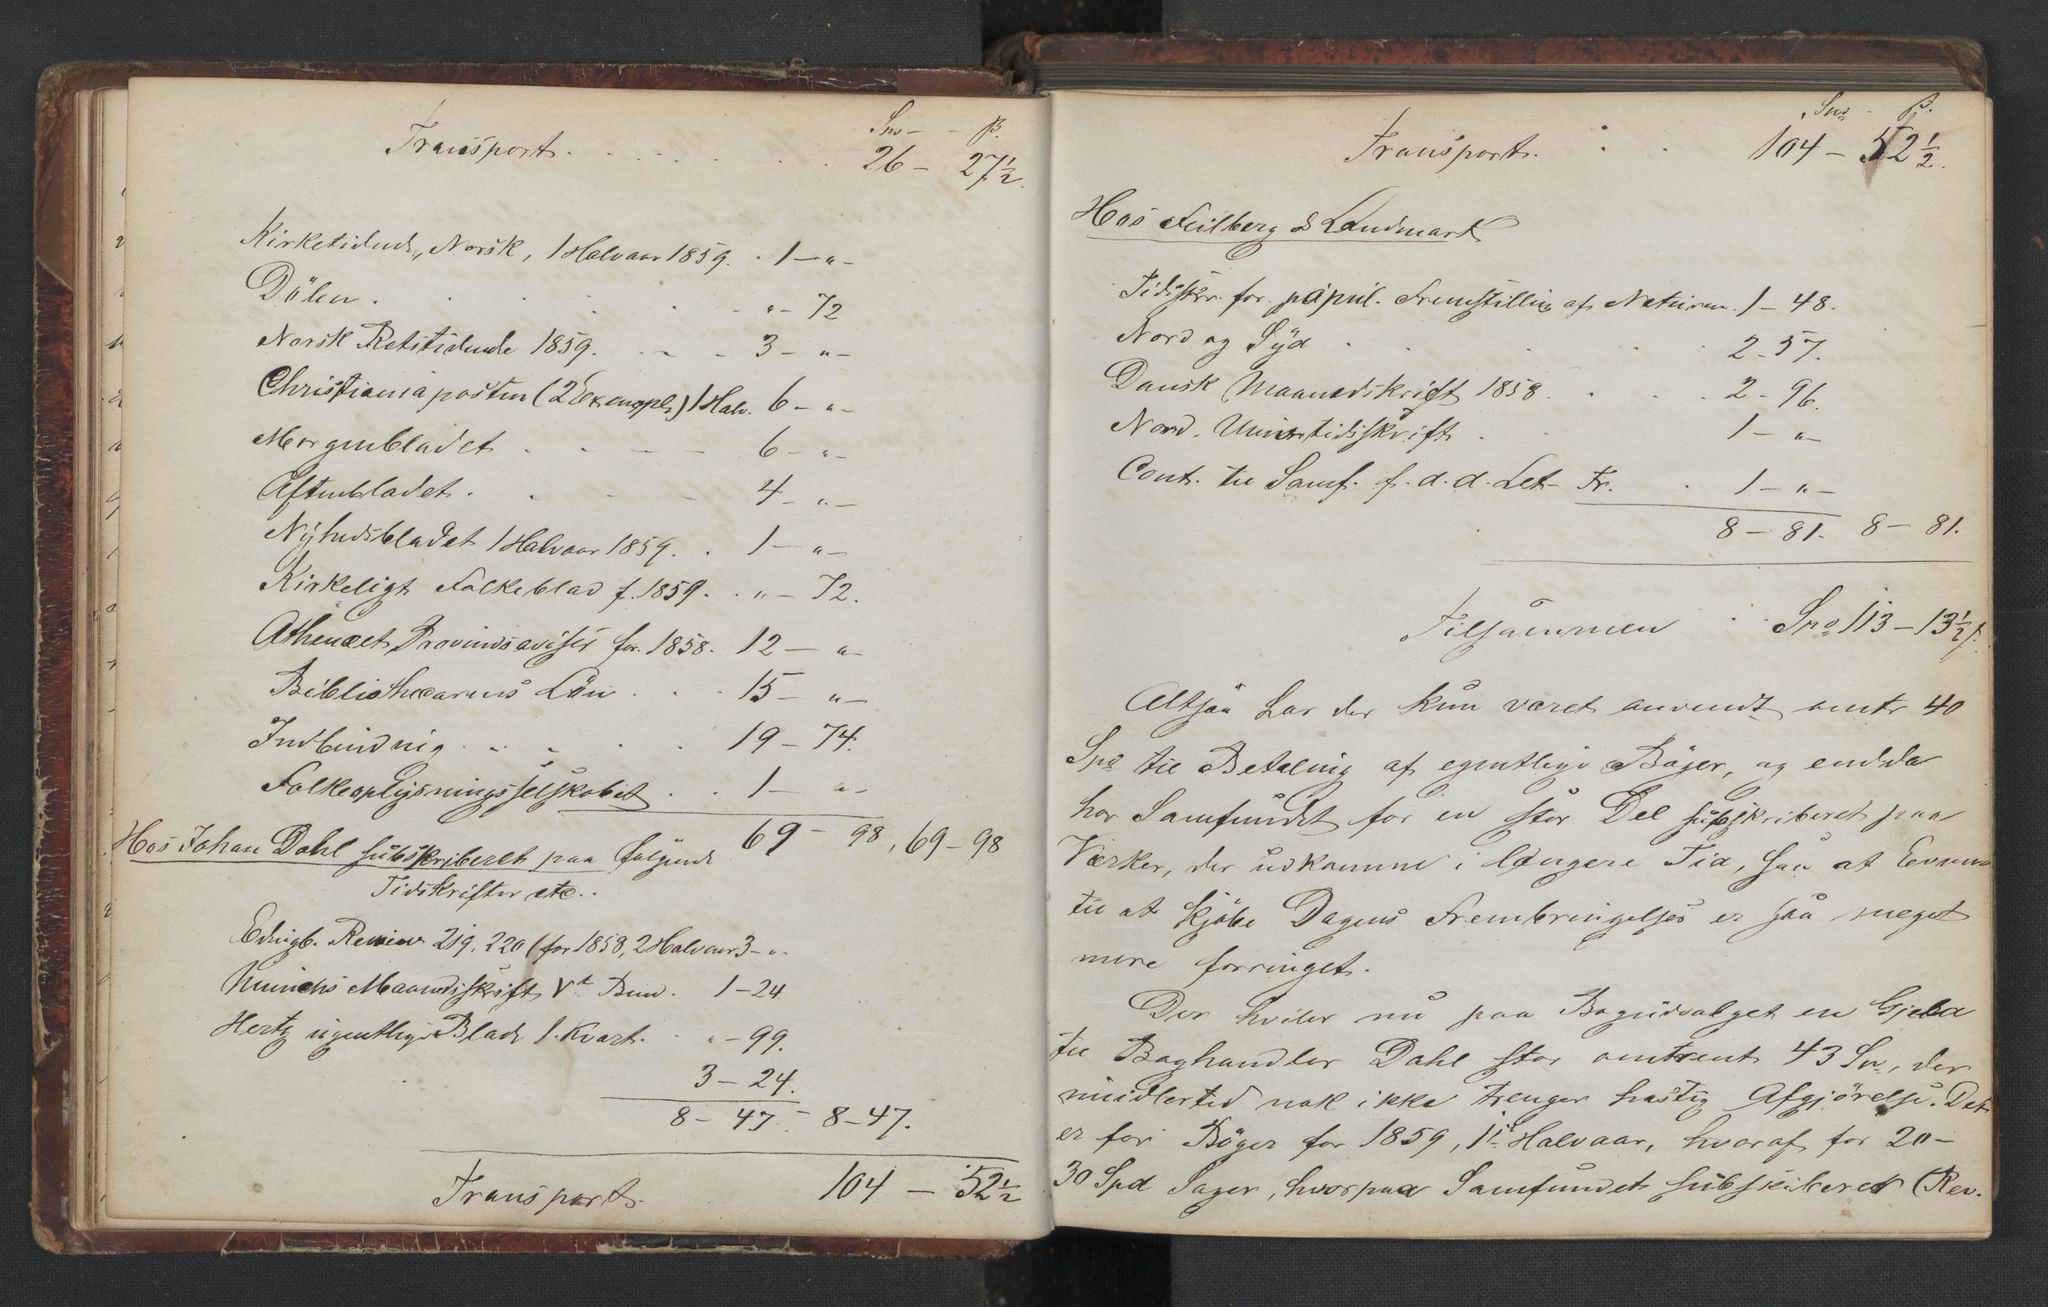 Spd - - ß.
Transport . . . . . . . 26 - 27½.
Kirketidend, Norsk, 1 Halvaar 1859. . 1 - " -
Dölen . . . . . " - 72
Norsk Retstidende 1859. . . . 3 - " -
Christianiaposten (2 Exempl.) 1 Halv. 6 - " -
Morgenbladet . . . . . 6 - " -
Aftenbladet . . . . . 4 - " -
Nyhedsbladet 1 Halvaar 1859. . 1 - " -
Kirkeligt Folkeblad f. 1859. . " - 72.
Athenæet, Provindsaviser for 1858. 12 - " -
Bibliothecarens Lön . . . 15 - " -
Indbinding . . . . . 19 - 74.
Folkeoplysningsselskabet . . 1 - " -
69 - 98, 69 - 98
Hos Johan Dahl subskriberet paa følgende
Tidskrifter etc.
Edingb. Review 219, 220 (for 1858, 2 Halvaar 3 - " -
Munchs Maanedsskrift Vt Bind. 1 - 24
Hertz ugentlige Blade 1. Kvart. . " - 99.
3 - 24.
8 - 47 - 8 - 47.
Transport . 104 - 52½
Spd - ß.
Transport. . . 104 - 52½.
Hos Feilberg & Landmark
Tidsskr. for popull. Fremstilling af Naturen. 1 - 48.
Nord og Syd . . . . . 2 - 57.
Dansk Maanedskrift 1858. . . . 2 - 96.
Nord. Univ. tidsskrift . . 1 - " -
Cont. til Samf. f. d. d. Let. Fr. . 1 - " -
8 - 81. 8 - 81.
Tilsammen . Spd 113 - 13½ ß.
Altsaa har der kun været anvendt omtr 40
Spd til Betaling af egentlige Bøger, og endda
har Samfundet for en stor Del subskriberet paa
Værker, der udkomme i længere Tid, saa at Evnen
til at kjøbe Dagens Frembringelser er saa meget
mere forringet.
Der hviler nu paa Bogudvalget en Gjeld
til Boghandler Dahl stor omtrent 43 Spd, der
midlertid nok ikke trenger hastig Afgjörelse. Det
er for Böger for 1859, 1ste Halvaar, hvoraf for 20-
30 Spd Sager, hvorpaa Samfundet subskriberer (Rev.